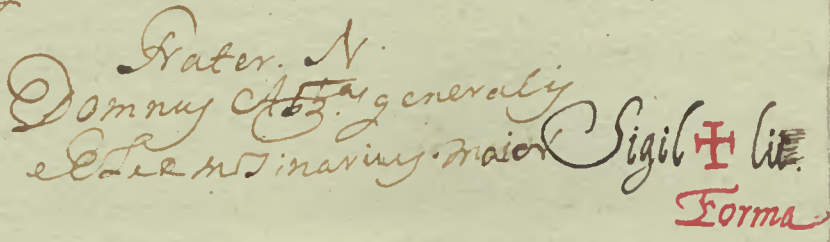 Frater. N.
Domnus Abb.as generalis
Eleemosinarius. maior Sigil ✠ lii
Forma